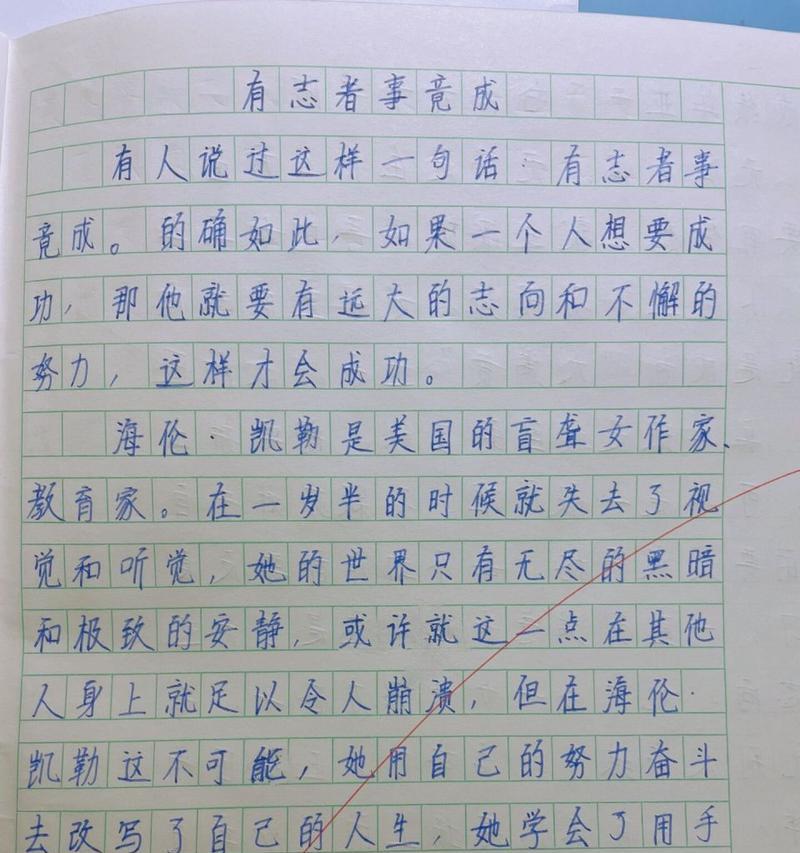 有志者事竟成
有人说过这样一句话：有志者事
竟成。的确如此，如果一个人想要成
功，那他就要有远大的志向和不懈的
努力，这样才会成功。
海伦·凯勒是美国的盲聋女作家、
教育家。在一岁半的时候就失去了视
觉和听觉，她的世界只有无尽的黑暗
和极致的安静，或许就这一点在其他
人身上就足以令人崩溃，但在海伦·
凯勒这不可能，她用自己的努力奋斗
去改写了自己的人生，她学会了用手